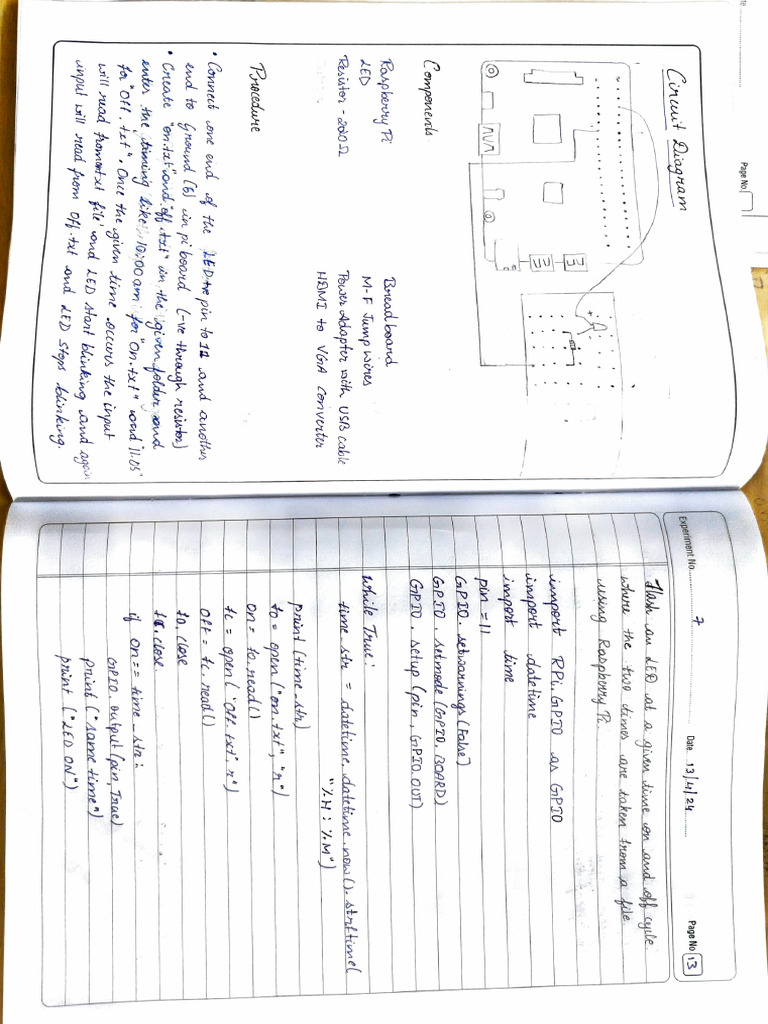 Page No.
Circuit Diagram
Components
Raspberry Pi
LED
Resistor - 220Ω
Breadboard
M-F Jump wires
Power Adapter with USB cable
HDMI to VGA converter
Procedure
• Connect one end of the LED +ve pin to 11 and another
end to Ground (6) in pi board (-ve through resistor)
• Create "on.txt" and "off.txt" in the given folder and
enter the timing like 10:00 am for "On.txt" and 11.05
for "Off.txt". Once the given time occurs the input
will read from txt file and LED start blinking and again
input will read from off.txt and LED stops blinking.
Experiment No. 7
Date. 13/4/24
Page No 13
Flash an LED at a given time on and off cycle
where the two times are taken from a file
using Raspberry Pi.
import RPi.GPIO as GPIO
import datetime
import time
pin = 11
GPIO.setwarnings(False)
GPIO.setmode(GPIO.BOARD)
GPIO.setup(pin, GPIO.OUT)
While True:
time_str = datetime.datetime.now().strftime(
"%H:%M")
print(time_str)
to = open("on.txt", "r")
on = to.read()
tc = open("Off.txt", r")
Off = tc.read()
to.close
tc.close
if on == time_str:
GPIO.output(pin, True)
print("same time")
print("LED ON")